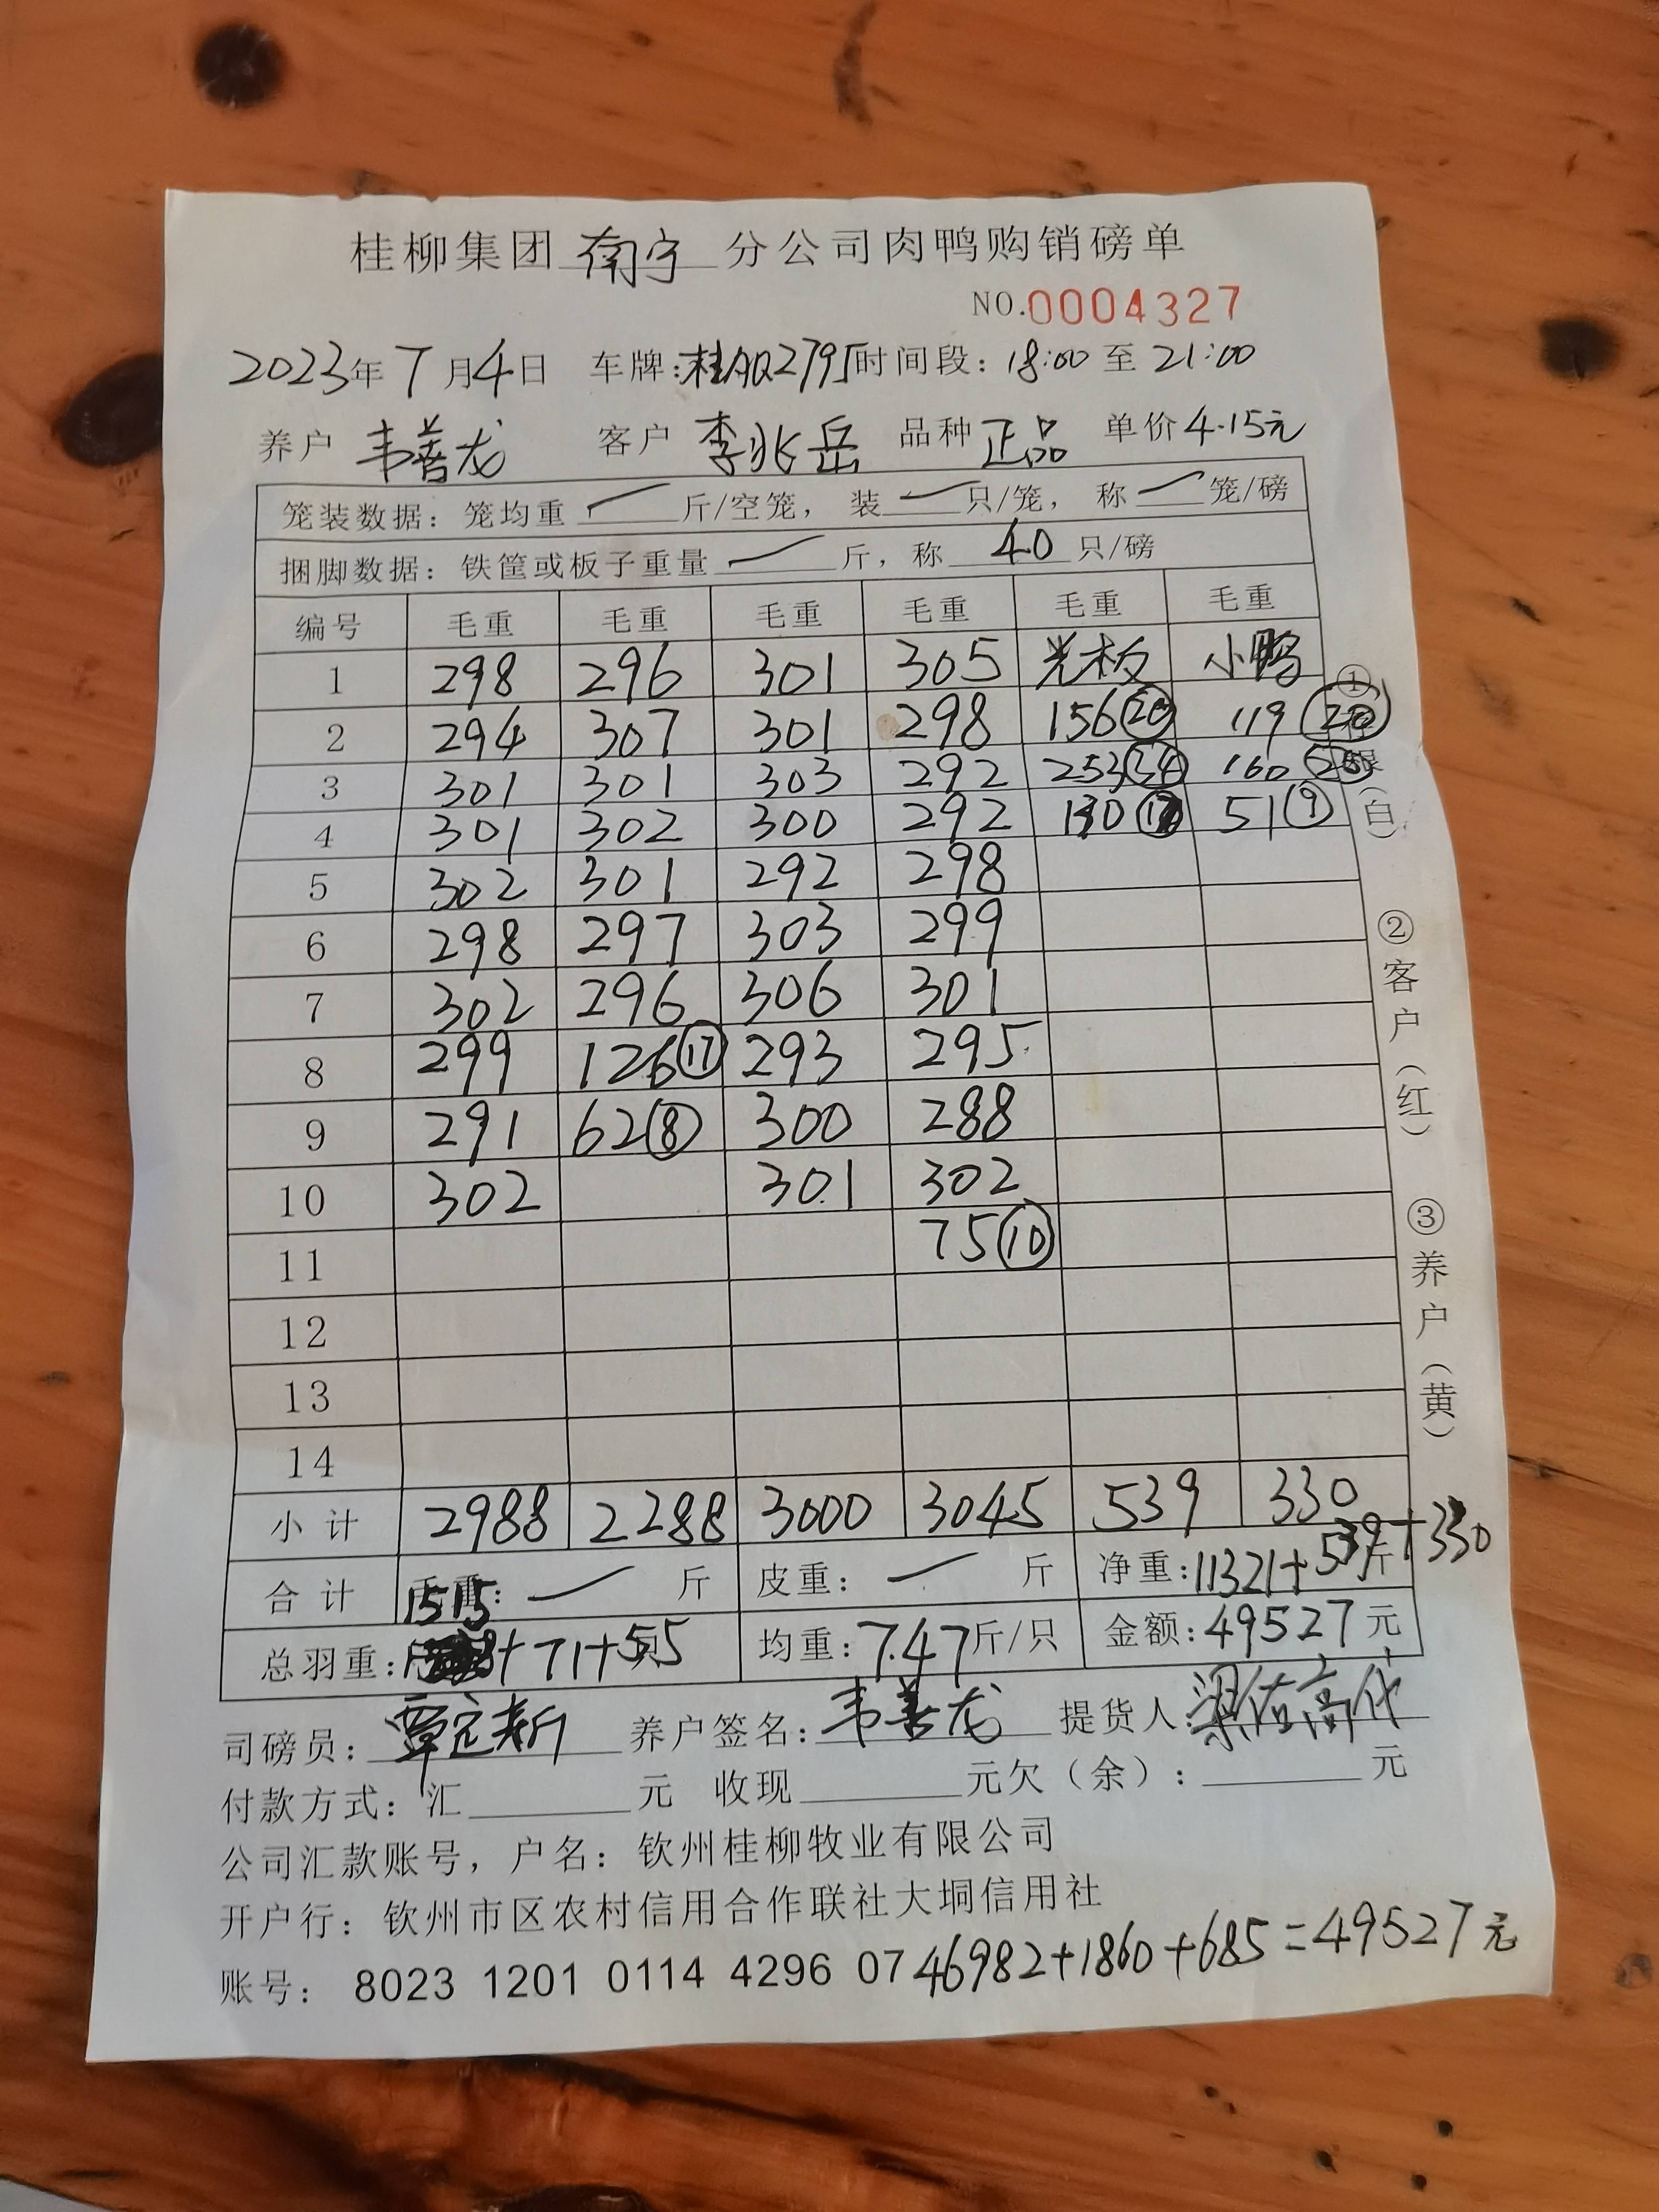 桂柳集团 南宁 分公司肉鸭购销磅单
NO.0004327
2023年 7月4日 车牌:桂AQ2795 时间段: 18:00 至 21:00
养户 韦善龙 客户 李兆岳 品种 正品 单价 4.15元
笼装数据: 笼均重 — 斤/空笼, 装 — 只/笼, 称 — 笼/磅
捆脚数据: 铁筐或板子重量 — 斤, 称 40 只/磅
编号 毛重 毛重 毛重 毛重 毛重 毛重
1 298 296 301 305 光板 小鸭
2 294 307 301 298 156⑳ 119⑳
3 301 301 303 292 253㉞ 160
4 301 302 300 292 130⑰ 51⑨
5 302 301 292 298
6 298 297 303 299
7 302 296 306 301
8 299 126⑰ 293 295
9 291 62⑧ 300 288
10 302 301 302
11 75⑩
12
13
14
小计 2988 2288 3000 3045 539 330
合计 毛重: — 斤 皮重: — 斤 净重: 11321+539+330 斤
1515
总羽重: +71+55 均重: 7.47斤/只 金额: 49527元
司磅员: 覃定新 养户签名: 韦善龙 提货人: 梁佑高代
付款方式: 汇 元 收现 元欠(余): 元
公司汇款账号, 户名: 钦州桂柳牧业有限公司
开户行: 钦州市区农村信用合作联社大垌信用社
账号: 8023 1201 0114 4296 07
46982+1860+685=49527元
①
(白)
②客户(红)
③养户(黄)